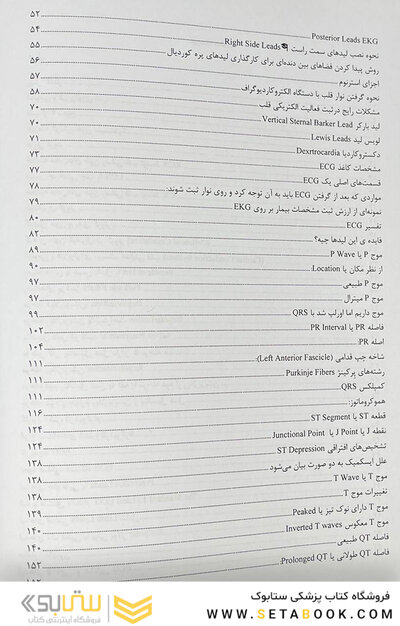 Posterior Leads EKG ۵۲
نحوه نصب لیدهای سمت راست Right Side Leads ۵۴
روش پیدا کردن فضاهای بین دنده‌ای برای کارگذاری لیدهای پره کوردیال ۵۵
اجزای استرنوم ۵۶
نحوه گرفتن نوار قلب با دستگاه الکتروکاردیوگراف ۵۶
مشکلات رایج درثبت فعالیت الکتریکی قلب ۵۸
لید بارکر Vertical Sternal Barker Lead ۷۰
لویس لید Lewis Leads ۷۰
دکستروکاردیا Dexrtrocardia ۷۱
مشخصات کاغذ ECG ۷۳
قسمت‌های اصلی یک ECG ۷۷
مواردی که بعد از گرفتن ECG باید به آن توجه کرد و روی نوار ثبت شوند: ۷۸
نمونه‌ای از ارزش ثبت مشخصات بیمار بر روی EKG ۷۹
تفسیر ECG ۸۰
فایده ی این لیدها چیه؟ ۸۲
موج P یا P Wave ۸۹
از نظر مکان یا Location: ۹۰
موج P طبیعی ۹۷
موج P میترال ۹۷
موج داریم اما اورلپ شد با QRS ۹۹
فاصله PR یا PR Interval ۱۰۲
اصله PR: ۱۰۴
شاخه چپ قدامی (Left Anterior Fascicle): ۱۱۱
رشته‌های پرکینژ Purkinje Fibers ۱۱۱
کمپلکس QRS ۱۱۱
هموکروماتوز: ۱۱۶
قطعه ST یا ST Segment ۱۲۴
نقطه J یا J Point یا Junctional Point ۱۲۴
تشخیص‌های افتراقی ST Depression ۱۳۸
علل ایسکمیک به دو صورت بیان می‌شود ۱۳۸
موج T یا T Wave ۱۳۸
تغییرات موج T ۱۳۹
موج T دارای نوک تیز یا Peaked ۱۴۰
موج T معکوس Inverted T waves ۱۴۰
فاصله QT طبیعی ۱۵۲
فاصله QT طولانی یا Prolonged QT:
فروشگاه کتاب پزشکی ستابوک
WWW.SETABOOK.COM
ستابوک
فروشگاه اینترنتی کتاب